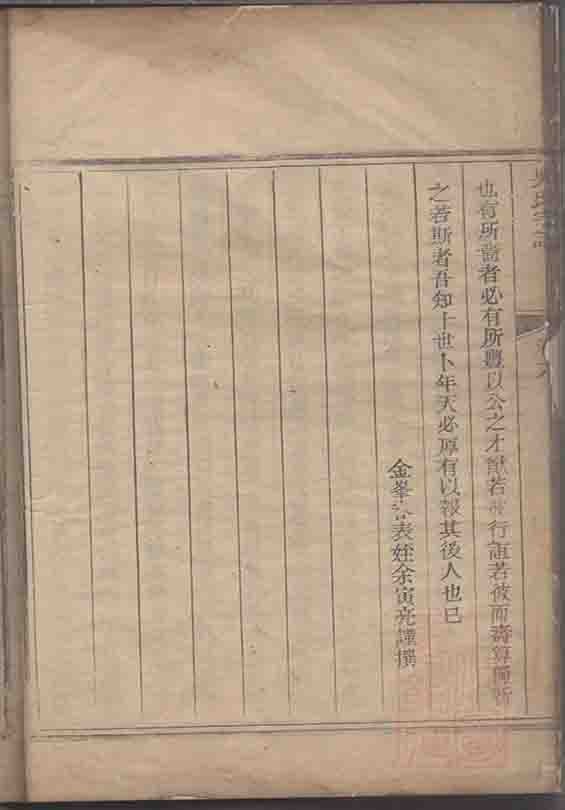 也有所嗇者必有所豐以公之才猷若彼行誼若彼而壽算僅斯
之若斯者吾知卜世卜年天必厚有以報其後人也已
金峯公表姪余寅亮謹撰
吳氏宗譜